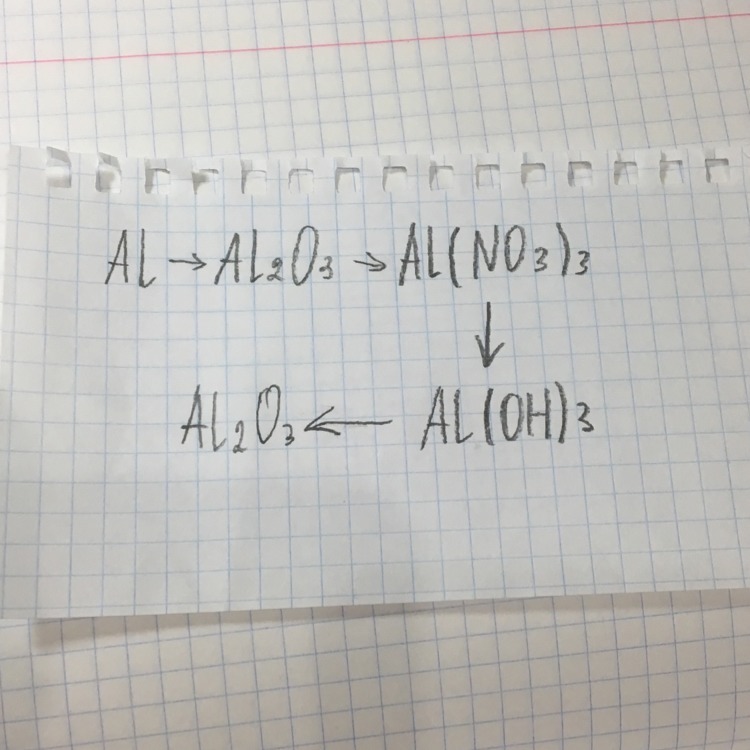 Al → Al₂O₃ → Al(NO₃)₃
↓
Al₂O₃ ← Al(OH)₃